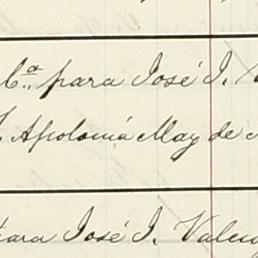 C.ª para José I.
Apolonia May de
para José I. Valen